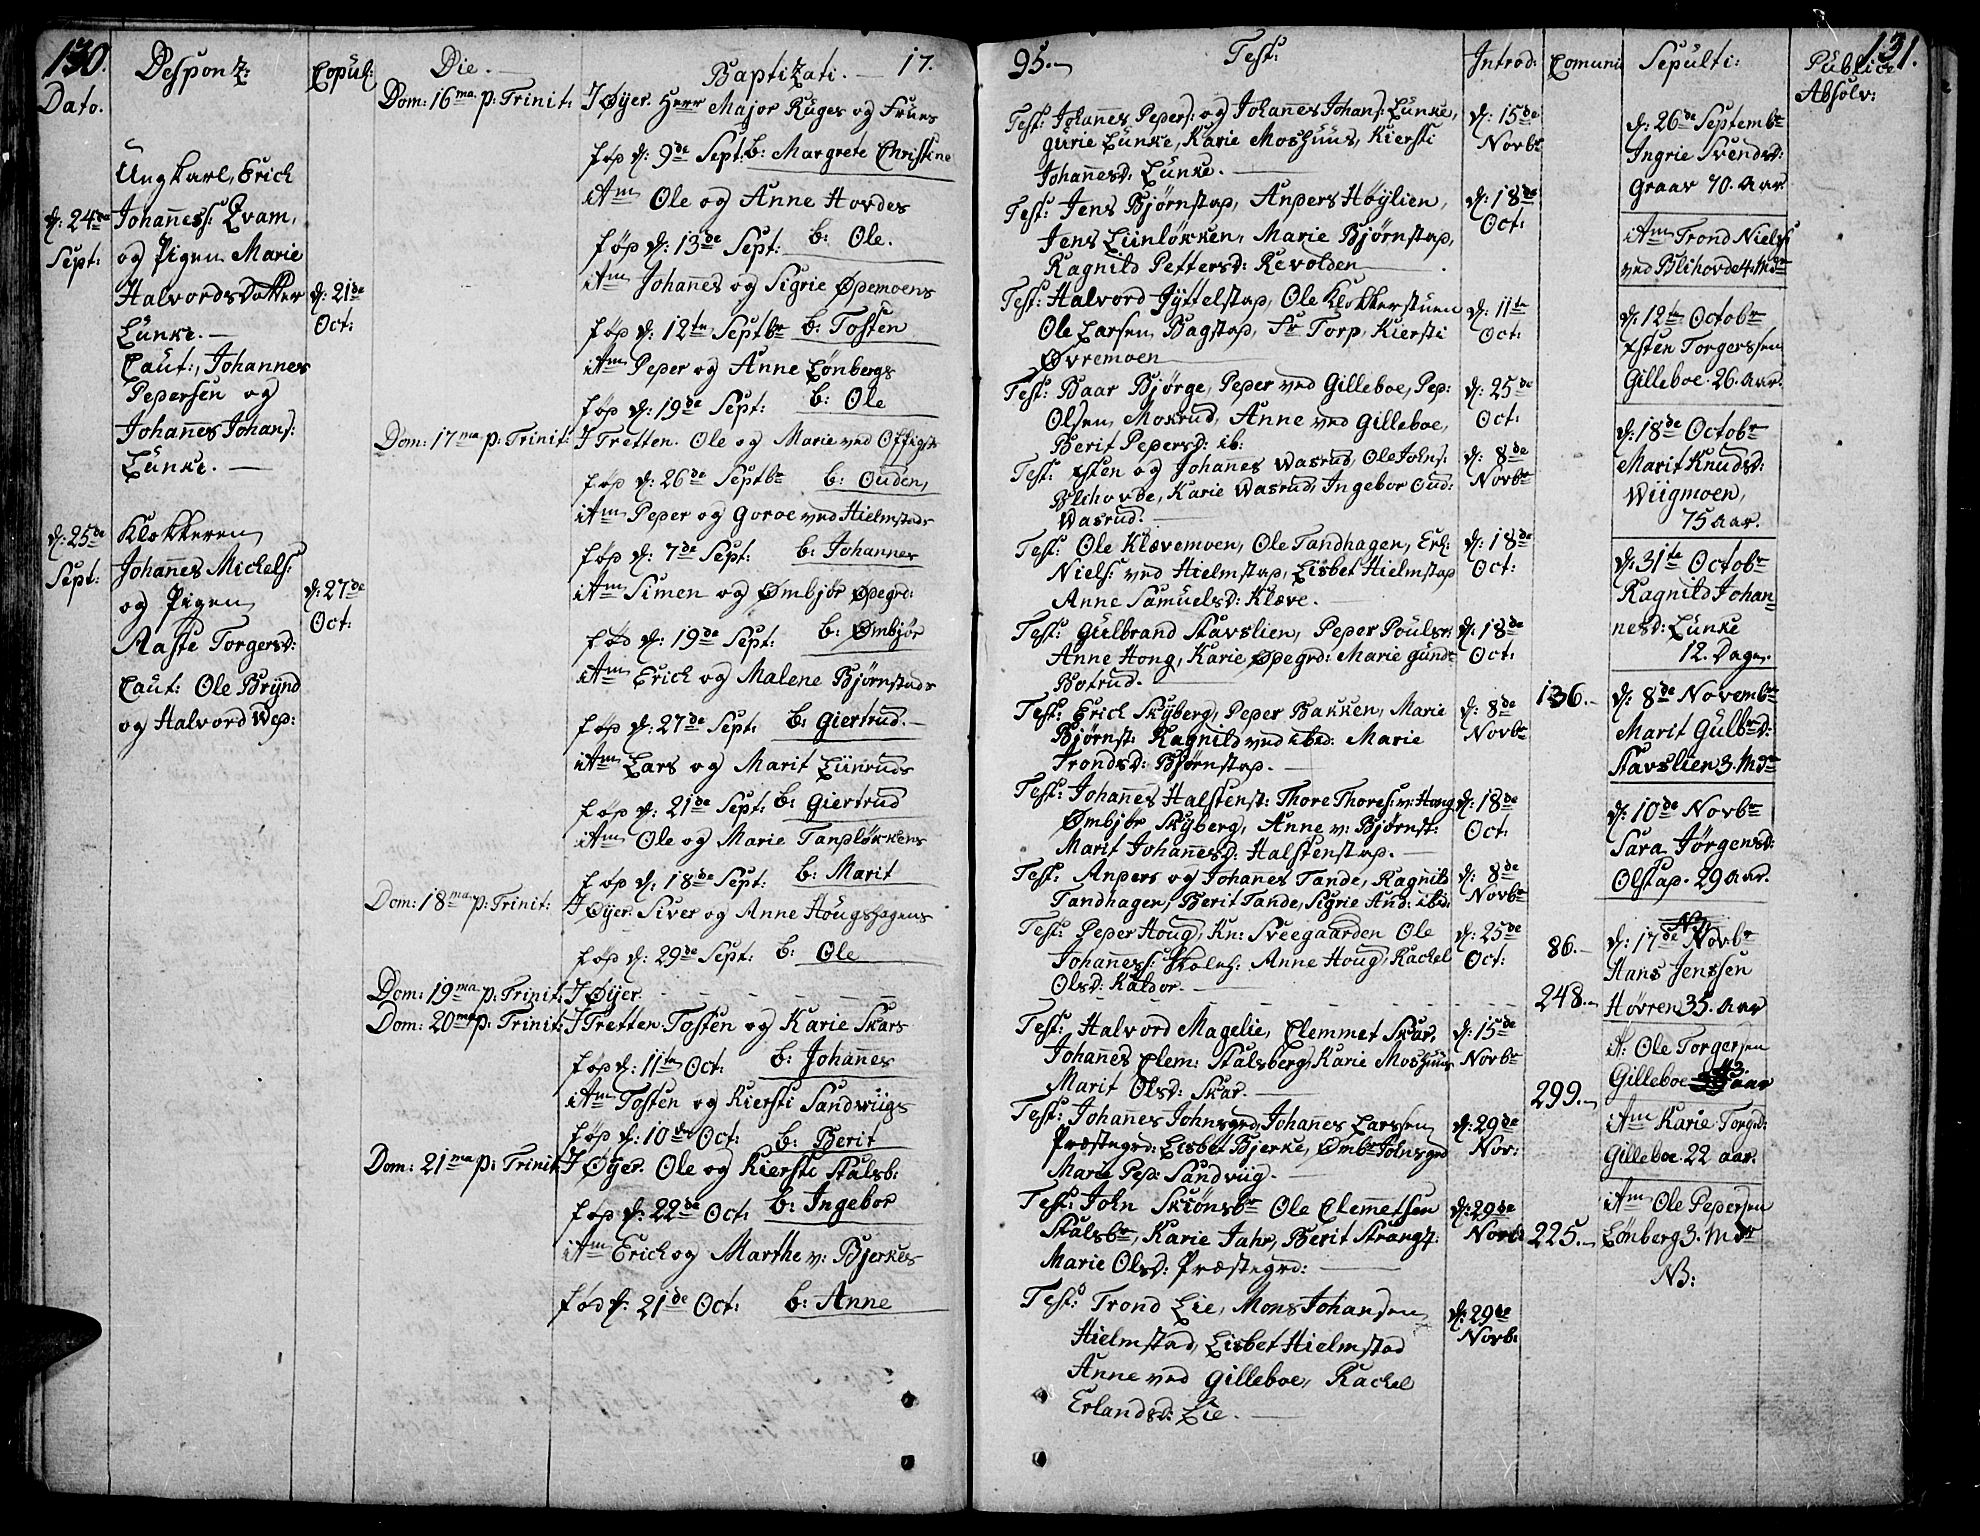 130.
Dato.
Desponz:
Copul:
Die.
Baptizati. 17.
d: 24de
Sept:
Ungkarl, Erich
Johanness: Qvam,
og Pigen Marie
Halvordsdatter
Lunke. —
Caut:, Johannes
Pedersen og
Johannes Johans:
Lunke. —
d: 21de
Oct:
d: 25de
Sept:
Klokkeren
Johannes Michels:
og Pigen
Aaste Torgersd:
Caut: Ole Brynd
og Halvord Wed:
d: 27de
Oct:
Dom: 16ma p: Trinit:
I Øyer. Herr Major Ruges og Frues
fød d: 9de Sept: b: Margrete Christine
itm Ole og Anne Hovdes
fød d: 13de Sept: b: Ole.
itm Johannes og Sigrie Øpemoens
fød d: 12te Septbr b: Tosten
itm Peder og Anne Lønbergs
fød d: 19de Sept: b: Ole
Dom: 17ma p: Trinit:
I Tretten. Ole og Marie ved Offigst:
fød d: 26de Septbr b: Ouden,
itm Peder og Goroe ved Hielmstads
fød d: 7de Sept: b: Johannes
itm Simen og Ømbjør Øpegrd:
fød d: 19de Sept: b: Ømbjør
itm Erich og Malene Bjørnstads
fød d: 27de Sept: b: Giertrud. —
itm Lars og Marit Liinruds
fød d: 21de Sept: b: Giertrud
itm Ole og Marie Tandløkkens
fød d: 18de Sept: b: Marit
Dom: 18ma p: Trinit:
I Øyer. Siver og Anne Hougshagens
fød d: 29de Sept: b: Ole
Dom: 19ma p: Trinit: I Øyer. - - - -
Dom: 20ma p: Trinit: I Tretten. Tosten og Karie Skars
fød d: 11te Oct: b: Johannes
itm Tosten og Kiersti Sandvigs
fød d: 10de Oct: b: Berit
Dom: 21ma p: Trinit: I Øyer. Ole og Kiersti Stalsb:
fød d: 22de Oct: b: Ingebor
itm Erich og Marthe v: Bjerkes
fød d: 21de Oct: b: Anne
131.
95. —
Test:
Introd:
Comuni
Sepulti:
Publice
Absolv:
Test: Johannes Peders: og Johannes Johans: Lunke,
Gurie Lunke, Karie Moshuus, Kiersti
Johannesd: Lunke. —
d: 15de
Novbr
Test: Jens Bjørnstad, Anders Høylien,
Jens Liinløkken, Marie Bjørnstad,
Ragnild Pettersd: Revolden
d: 18de
Oct:
Test: Halvord Jyttelstad, Ole Klokkerstuen
Ole Larsen Bagstad, Fr Torp, Kiersti
Øvremoen
d: 11te
Oct:
Test: Baar Bjørge, Peder ved Gilleboe, Ped:
Olsen, Mokrud, Anne ved Gilleboe,
Berit Pedersd: ib:
d: 25de
Oct:
Test: Esten og Johannes Wasrud, Ole Johs:
Blihovde, Karie Wasrud, Ingebor Oud:
Wasrud. —
d: 8de
Novbr
Test: Ole Klævemoen, Ole Tandhagen, Erl:
Niels: ved Hielmstad, Lisbet Hielmstad
Anne Samuelsd: Klæve. —
d: 18de
Oct:
Test: Gulbrand Stavslien, Peder Pouls:
Anne Hong, Karie Øpegrd: Marie Gund:
Botrud. —
d: 18de
Oct:
Test: Erich Skyberg, Peder Bakken, Marie
Bjørnst: Ragnild ved ibid: Marie
Trondsd: Bjørnstad. —
d: 8de
Novbr
Test: Johannes Halstenst: Thore Thores: v: Hong
Ømbjør Skyberg, Anne v: Bjørnst:
Marit Johannesd: Halstenstad. —
d: 18de
Oct:
Test: Anders og Johanes Tande, Ragnild
Tandhagen, Berit Tande, Sigrie And: ibid:
d: 8de
Novbr
Test: Peder Houg, Kn: Sveegaarden Ole
Johaness: Skoleh: Anne Houg, Rachel
Olsd: Kaldor. —
d: 25de
Oct:
Test: Halvord Magelie, Clemmet Skar,
Johanes Clem: Stalsberg, Karie Moshuus
Marit Olsd: Skar. —
d: 15de
Novbr
Test: Johannes Johnsgrd, Johannes Larssen
Præstegrd: Lisbet Bjerke, Ømbr Johnsgrd
Marie Ped: Sandvig. —
d: 29de
Nov:
Test: John Skiønsbr Ole Clemetsen
Stalsbr, Karie Jahr, Berit Strangst:
Marie Olsd: Præstegrd: —
d: 29de
Novb:
Test: Trond Lie, Mons Johansen
Hielmstad, Lisbet Hielmstad
Anne ved Gilleboe, Rachel
Erlandsd: Lie. —
d: 29de
Novb:
136. —
86. —
248. —
299. —
225. —
d: 26de Septembr
Ingrie Svendsd:
Graar 70. Aar
itm Trond Niels:
ved Blihovde 4. Mdr
d: 12te Octobr
Esten Torgerssen
Gilleboe. 26. Aar.
d: 18de Octobr
Marit Knudsd:
Wiigmoen,
75 Aar.
d: 31te Octobr
Ragnild Johan-
nesd: Lunke
12. Dage.
d: 8de Novembr
Marit Gulbrd:
Stavslien 3. Mdr
d: 10de Novbr
Sara Jørgensd:
Olstad. 29 Aar.
d: 17de Novbr
Hans Jenssen
Høvren 35. Aar
it: Ole Torgersen
Gilleboe aar
itm Karie Torgd:
Gilleboe 22 aar.
itm Ole Pedersen
Lønberg 3. Mdr
NB: